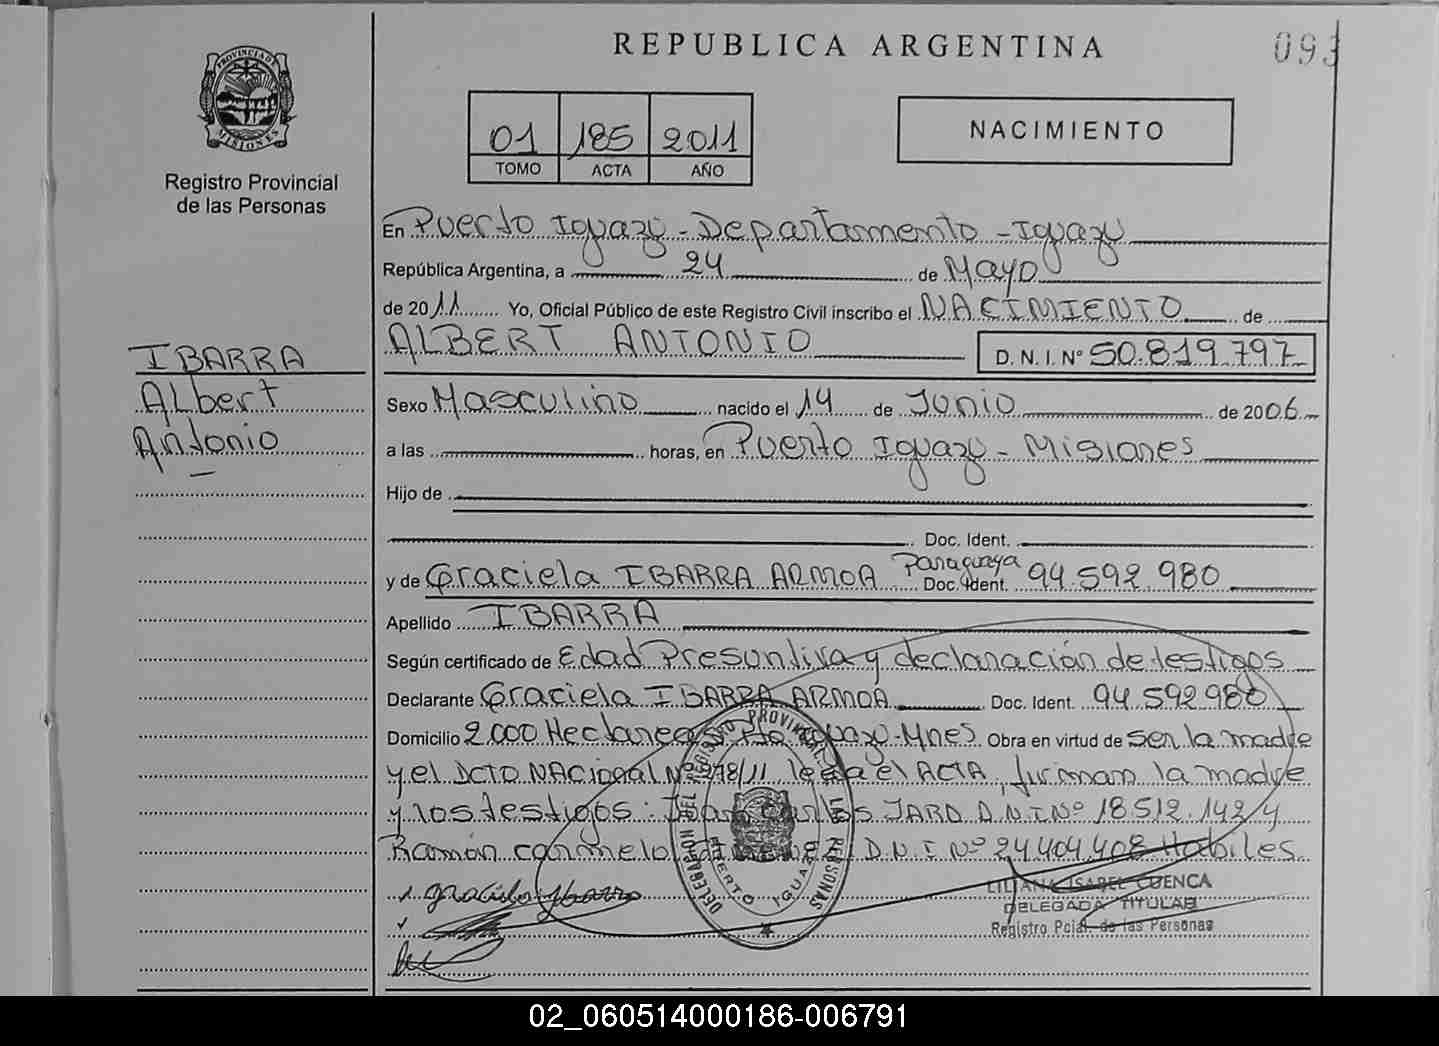 REPUBLICA ARGENTINA
093
PROVINCIA DE
MISIONES
Registro Provincial
de las Personas
01 185 2011
TOMO ACTA AÑO
NACIMIENTO
En Puerto Iguazú - Departamento - Iguazú
República Argentina, a 24 de Mayo
de 2011 Yo, Oficial Público de este Registro Civil inscribo el NACIMIENTO de
ALBERT ANTONIO D. N. I. Nº 50.819.797
IBARRA
Albert
Antonio
Sexo Masculino nacido el 14 de Junio de 2006
a las horas, en Puerto Iguazú - Misiones
Hijo de
Doc. Ident.
y de Graciela IBARRA ARMOA Paraguaya Doc. Ident. 94.592.980
Apellido IBARRA
Según certificado de Edad Presuntiva y declaración de testigos
Declarante Graciela IBARRA ARMOA Doc. Ident. 94.592.980
Domicilio 2.000 Hectareas Pto Iguazú - Mnes. Obra en virtud de ser la madre
y el DCTO NACional Nº 278/11 leída el ACTA, firman la madre
y los testigos: Juan Carlos JARA D.N.I Nº 18.512.142 y
Ramón carmelo D.N.I Nº 24.404.408 Habiles
Graciela Ibarra
DELEGACION DEL REGISTRO PROVINCIAL DE LAS PERSONAS
PUERTO IGUAZU
LILIANA ISABEL CUENCA
DELEGADA TITULAR
Registro Pcial. de las Personas
02_060514000186-006791